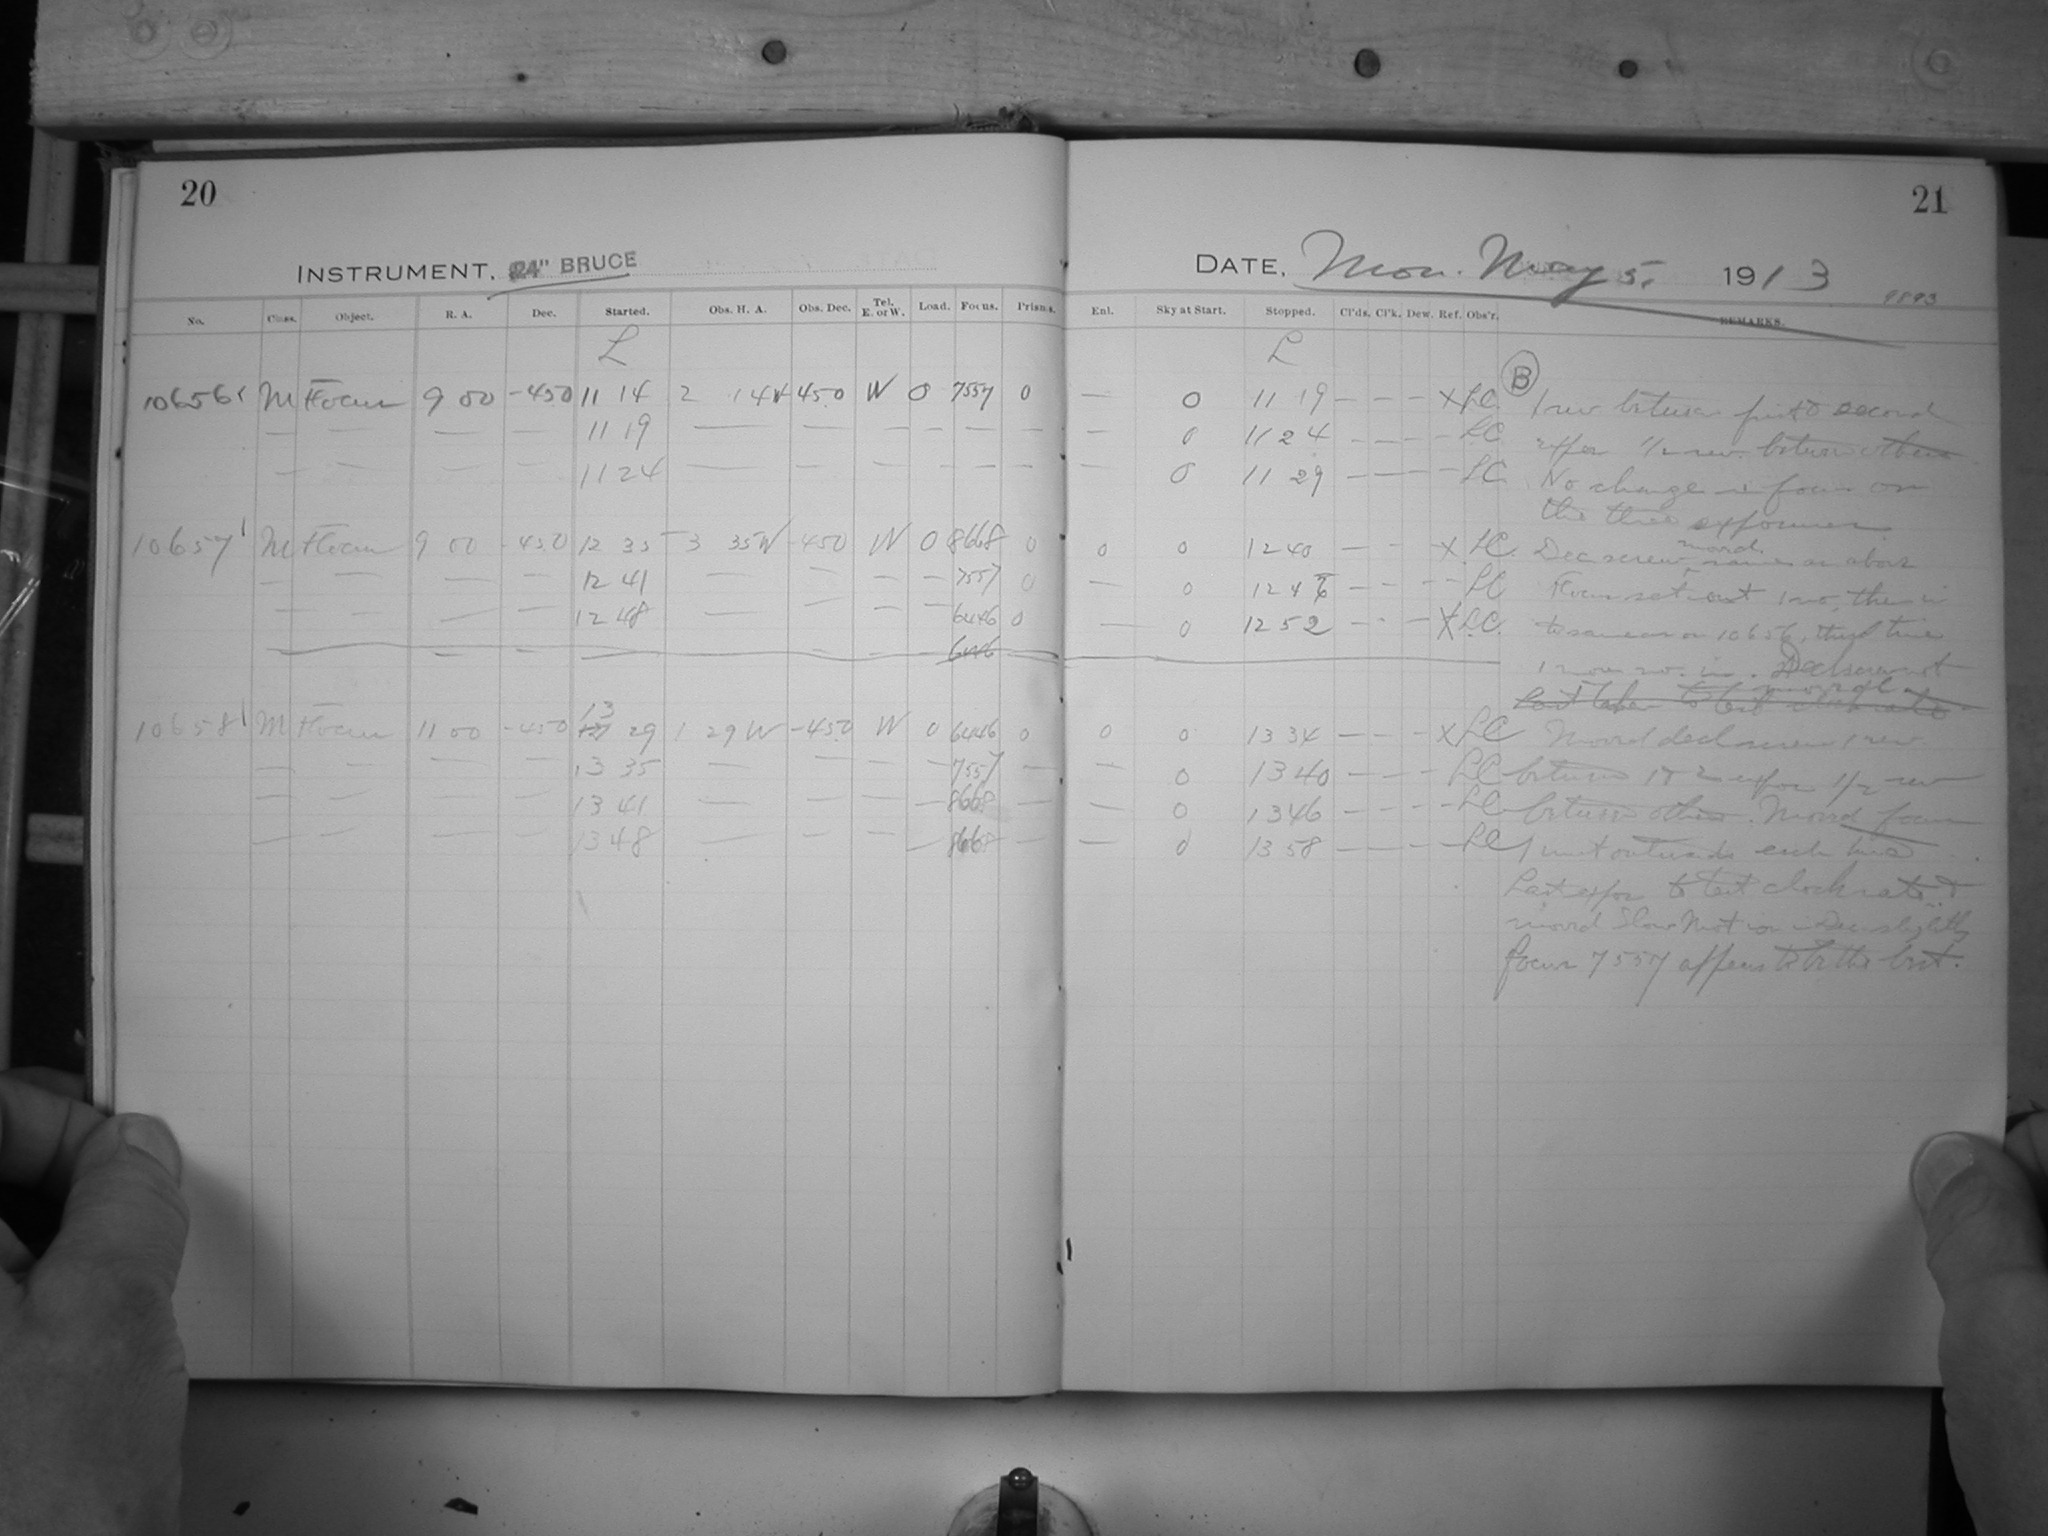 20
21
INSTRUMENT, 24" BRUCE
DATE, Mon. May 5, 1913
9893
No. Class. Object. R. A. Dec. Started. Obs. H. A. Obs. Dec. Tel. E. or W. Load. Focus. Prisms. Enl. Sky at Start. Stopped. Cl'ds. Cl'k. Dew. Ref. Obs'r. REMARKS.
L L
B
10656 M Focus 9 00 -45.0 11 14 2 14W 45.0 W 0 7557 0 — 0 11 19 — — — X LC 1 rev between first & second
— — — — 11 19 — — — — — — — 0 11 24 — — — LC expos 1/2 rev. between others
— — — — 11 24 — — — — — — — 0 11 29 — — — LC No change in focus on
the three exposures
10657 M Focus 9 00 -45.0 12 35 3 35W -45.0 W 0 8668 0 0 0 12 40 — — X LC Dec screw moved same as above
— — — — 12 41 — — — — 7557 0 — 0 12 46 — — — LC Focus set out 1 no, then in
— — — 12 48 — — — — 6446 0 — 0 12 52 — — — X LC to same as on 10656, third time
6446 1 more no. in. Decl screw not
moved
Last taken to test clock rate
10658 M Focus 11 00 -45.0 13 29 1 29W -45.0 W 0 6446 0 0 0 13 34 — — — X LC Moved decl screw 1 rev
— — — — 13 35 — — — — 7557 — — 0 13 40 — — — LC between 1 & 2 expos 1/2 rev
— — — — 13 41 — — — — 8668 — — 0 13 46 — — — LC between others. Moved focus
— — — — 13 48 — — — — 8668 — — 0 13 58 — — — LC 1 unit outwards each time
Last expos to test clock rate &
moved Slow Motion in Dec slightly
focus 7557 appears to be the best.